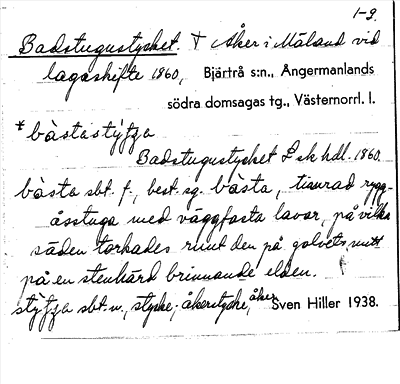 1-9.
Badstugustycket. † Åker i Mäland vid
lagaskifte 1860, Bjärtrå s:n., Ångermanlands
södra domsagas tg., Västernorrl. l.
*bàstastýtja
Badstugustycket Lsk hdl. 1860.
bàsta sbt. f., best. sg. bàsta, timrad rygg-
åsstuga med väggfasta lavar, på vilka
säden torkades runt den på golvets mitt
på en stenhärd brinnande elden.
stýtja sbt. n., stycke; åkerstycke, åker
Sven Hiller 1938.